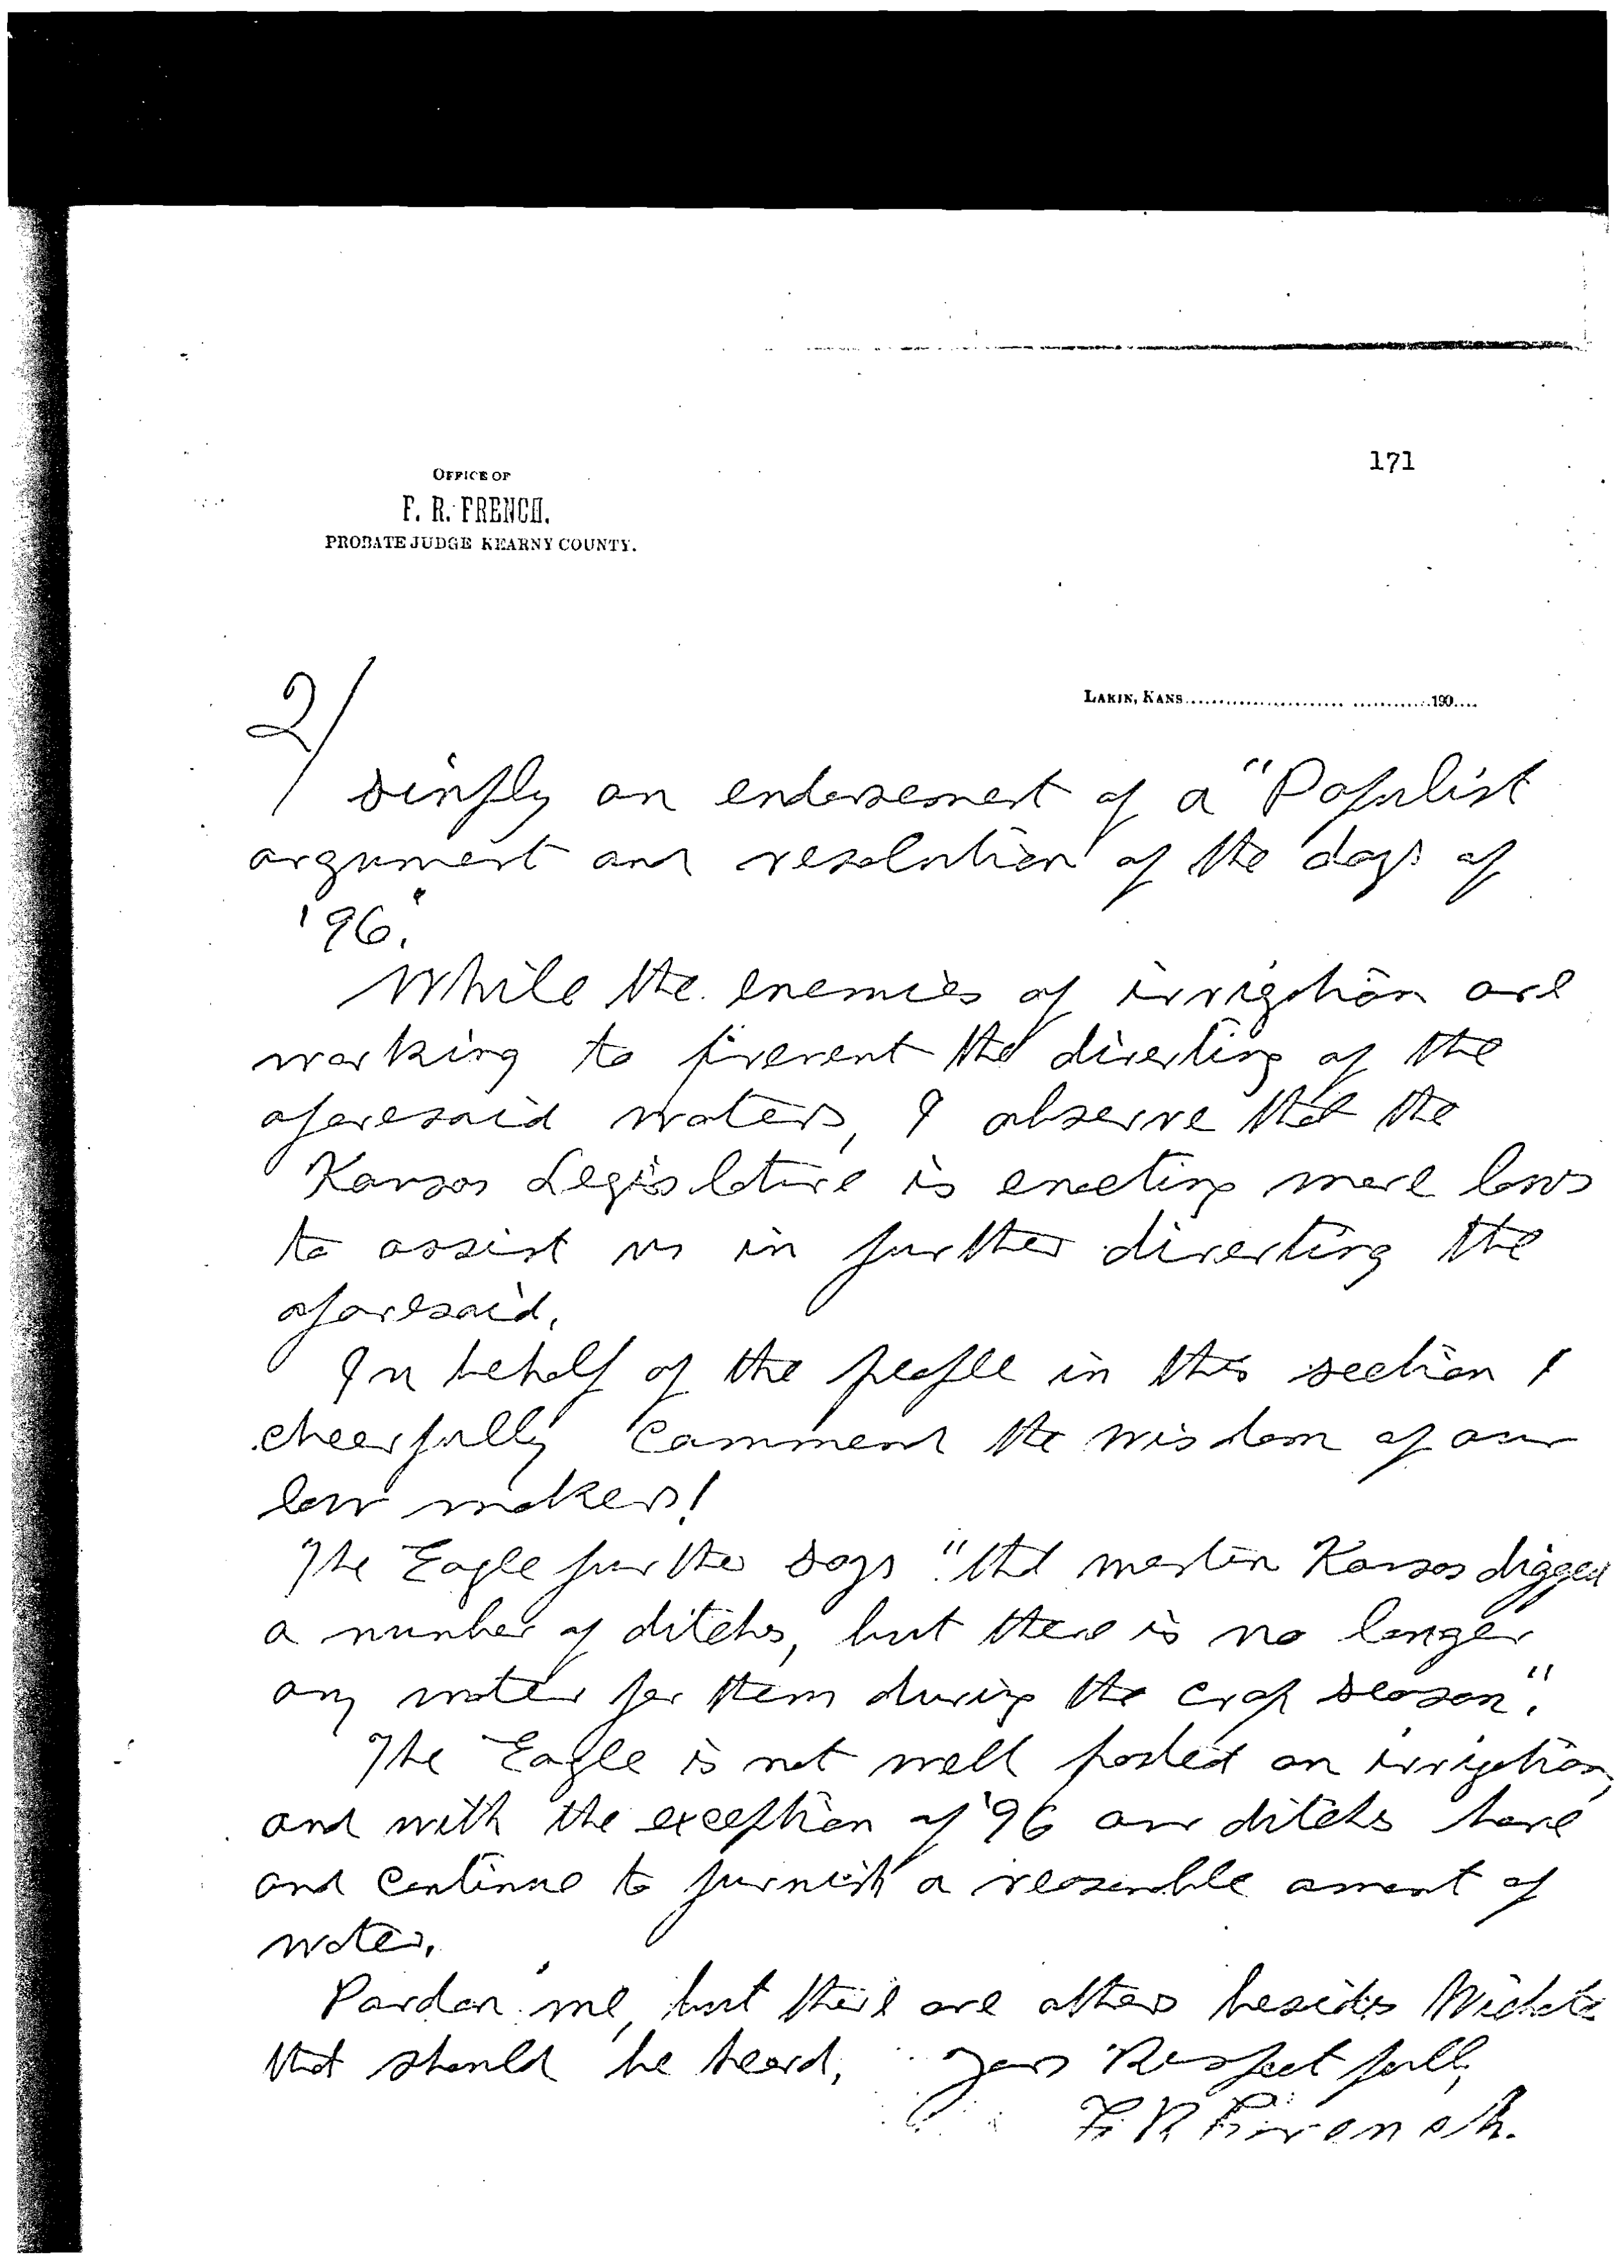 171
OFFICE OF
F. R. FRENCH.
PROBATE JUDGE KEARNY COUNTY.
LAKIN, KANS. 190
2/
simply an endorsement of a "Populist
argument and resolution of the days of
'96."
While the enemies of irrigation are
working to prevent the diverting of the
aforesaid waters, I observe that the
Kansas Legislature is enacting more laws
to assist us in further diverting the
aforesaid.
In behalf of the people in this section I
cheerfully commend the wisdom of our
law makers!
The Eagle further says "that western Kansas digged
a number of ditchs, but there is no longer
any water for them during the crop season".
The Eagle is not well posted on irrigation,
and with the exception of '96 our ditchs have
and continue to furnish a reasonble amont of
water.
Pardon me, but there are others besides Wichita
that should be heard. Yours Respectfully,
F R French.